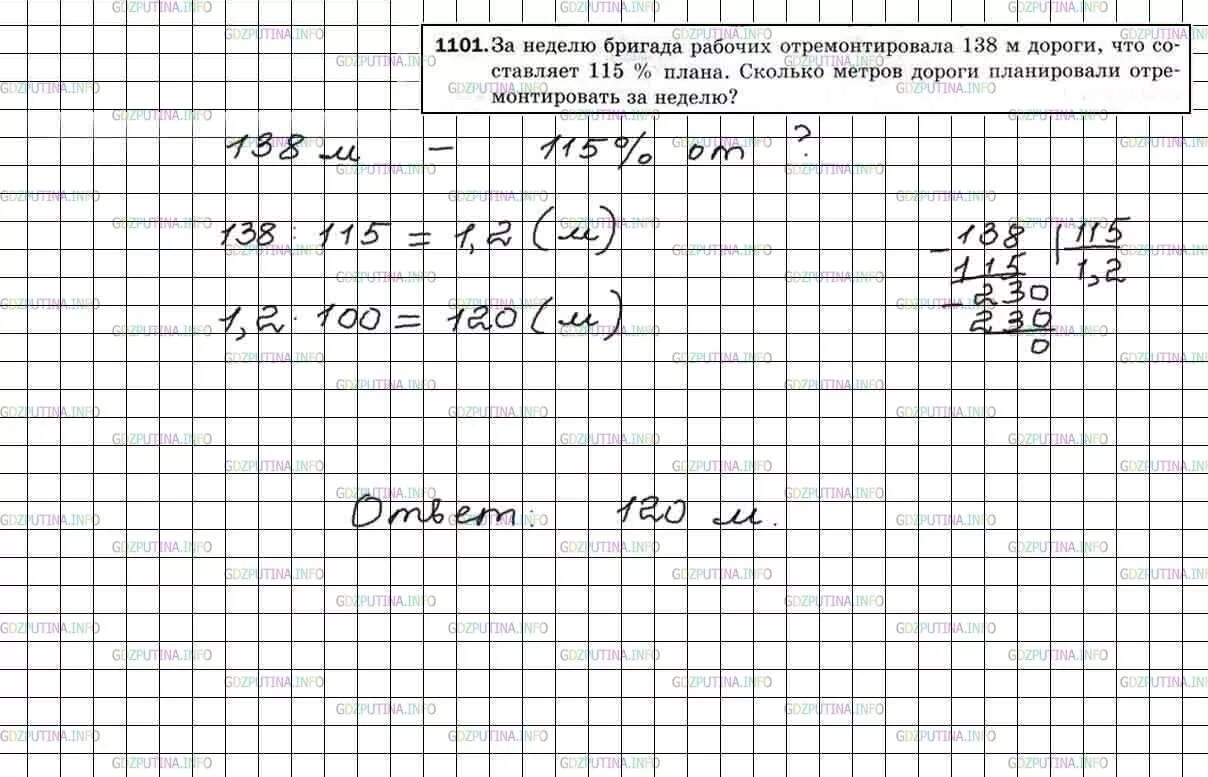 1101. За неделю бригада рабочих отремонтировала 138 м дороги, что со-
ставляет 115 % плана. Сколько метров дороги планировали отре-
монтировать за неделю?
138 м – 115% от ?
138 : 115 = 1,2 (м)
1,2 · 100 = 120 (м)
- 138 | 115
115 1,2
- 230
230
0
Ответ: 120 м.
GDZPUTINA.INFO